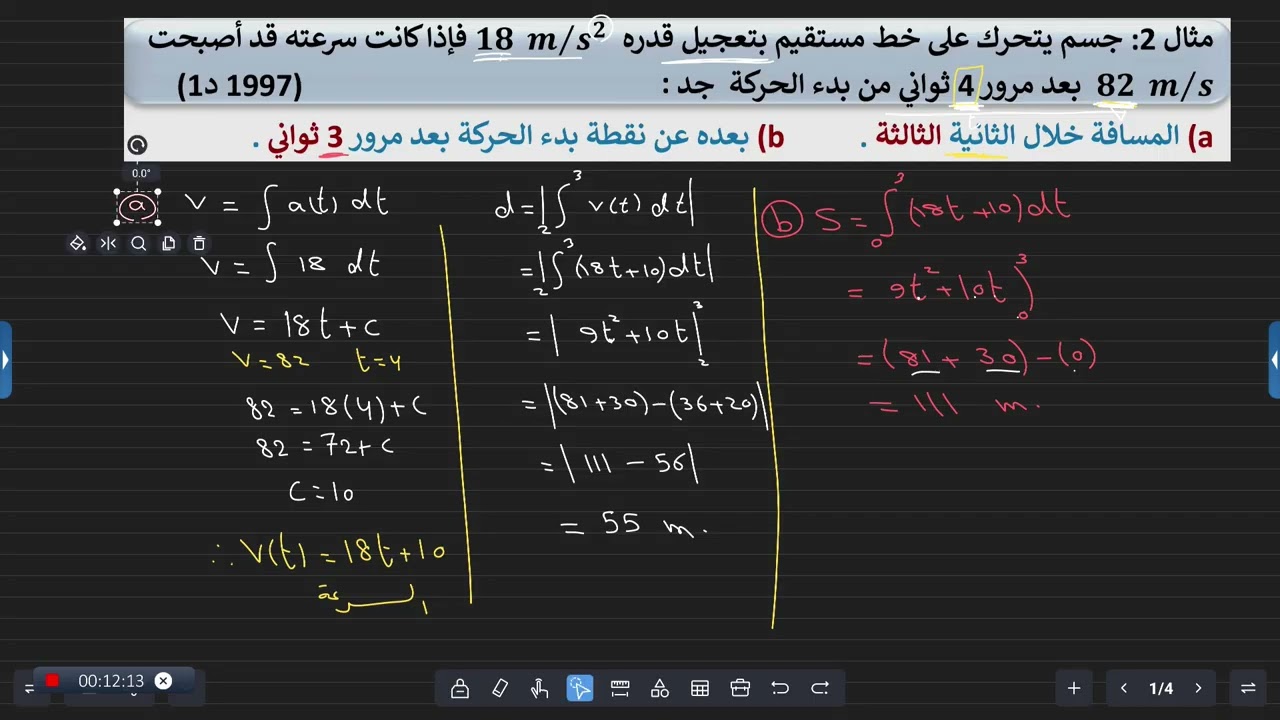 مثال 2: جسم يتحرك على خط مستقيم بتعجيل قدره 18 m/s² فإذا كانت سرعته قد أصبحت
82 m/s بعد مرور 4 ثواني من بدء الحركة جد : (1997 د1)
a) المسافة خلال الثانية الثالثة .
b) بعده عن نقطة بدء الحركة بعد مرور 3 ثواني .
0.0°
a
V = ∫ a(t) dt
V = ∫ 18 dt
V = 18t + C
V = 82 t = 4
82 = 18(4) + C
82 = 72 + C
C = 10
∴ V(t) = 18t + 10
السرعة
d = |∫₂³ v(t) dt|
= |∫₂³ (18t + 10) dt|
= | 9t² + 10t |₂³
= |(81 + 30) − (36 + 20)|
= | 111 − 56|
= 55 m.
b S = ∫₀³ (18t + 10) dt
= 9t² + 10t )₀³
= (81 + 30) − (0)
= 111 m.
00:12:13
1/4